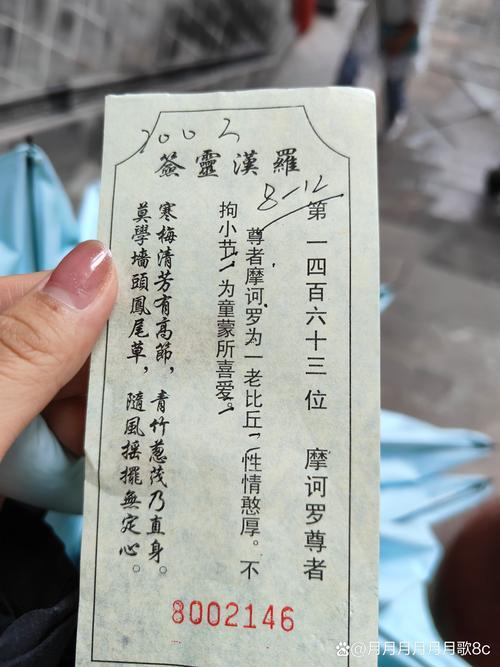 羅漢靈簽
8-12
第一四百六十三位 摩诃罗尊者
尊者摩诃罗为一老比丘，性情憨厚。不
拘小节，为童蒙所喜爱。
寒梅清芳有高節，青竹蔥茂乃直身。
莫學墻頭鳳尾草，隨風摇擺無定心。
8002146
@月月月月月月歌8c